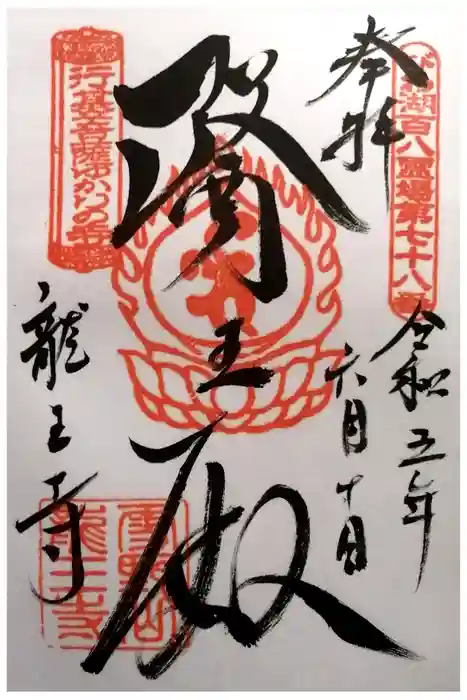 奉拝
びわ湖百八霊場第七十八番
令和五年
六月十日
醫王殿
行基菩薩ゆかりの寺
龍王寺
雪野山
龍王寺